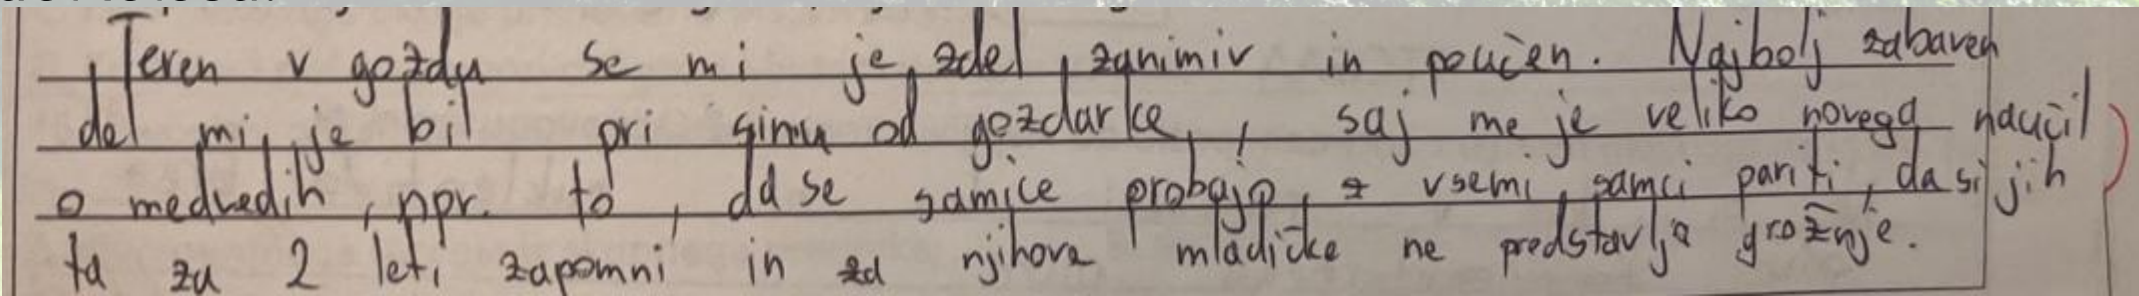 Teren v gozdu se mi je zdel zanimiv in poučen. Najbolj zabaven
del mi je bil pri sinu od gozdarke, saj me je veliko novega naučil
o medvedih, npr. to, da se samice probajo z vsemi samci pariti, da si jih
ta za 2 leti zapomni in za njihove mladičke ne predstavlja grožnje.